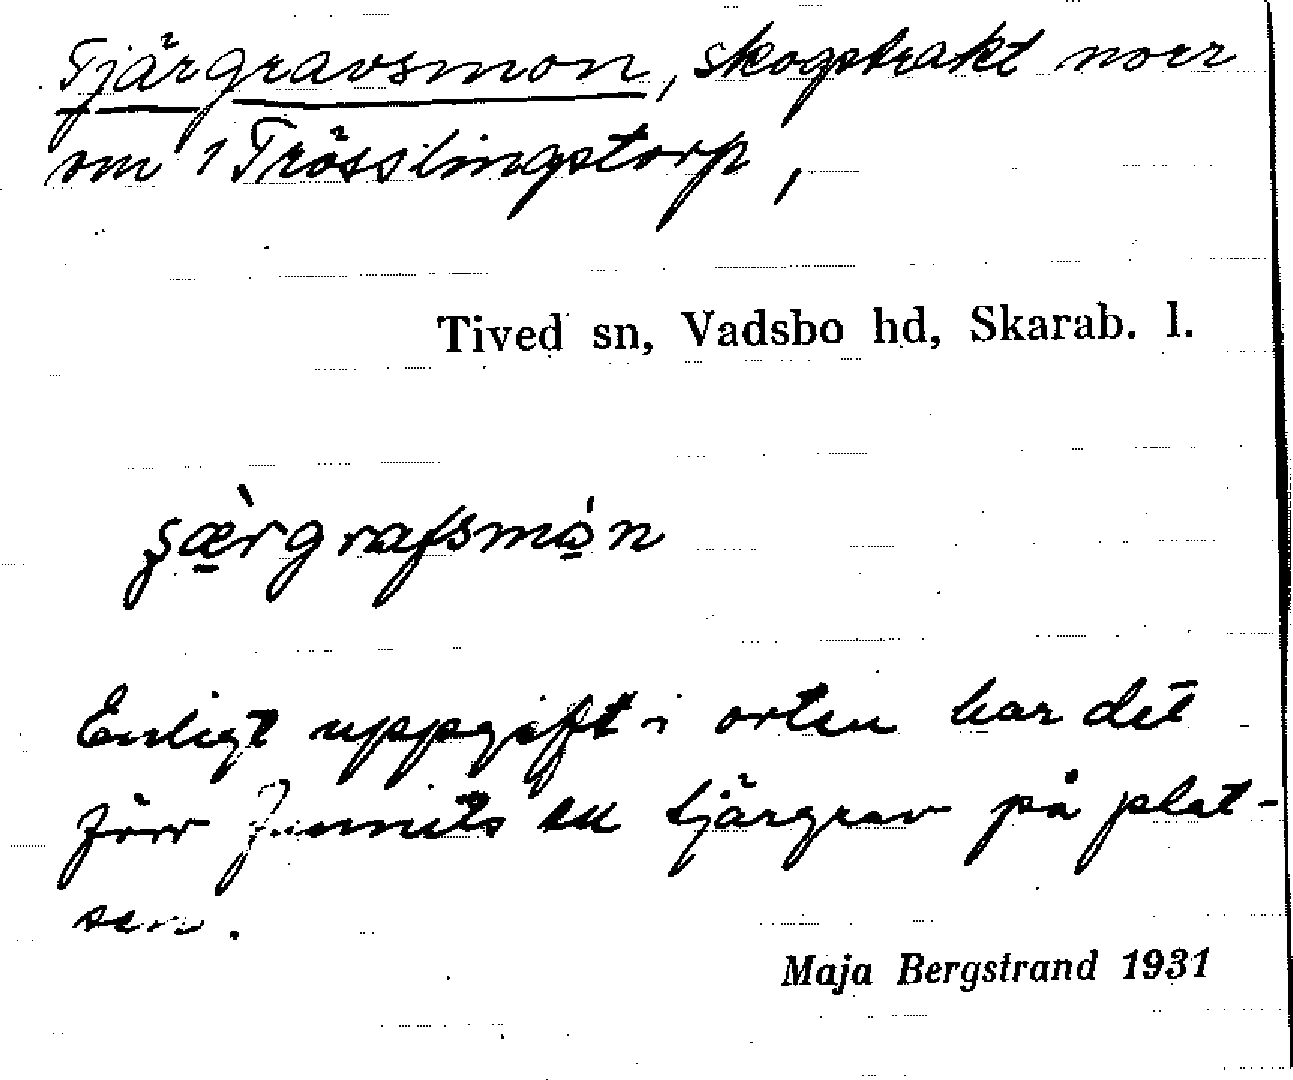 Tjärgravsmon, skogstrakt norr
om 1 Trösslingstorp,
Tived sn, Vadsbo hd, Skarab. l.
Enligt uppgift i orten har det
förr funnits en tjärgrav på plat-
sen.
Maja Bergstrand 1931